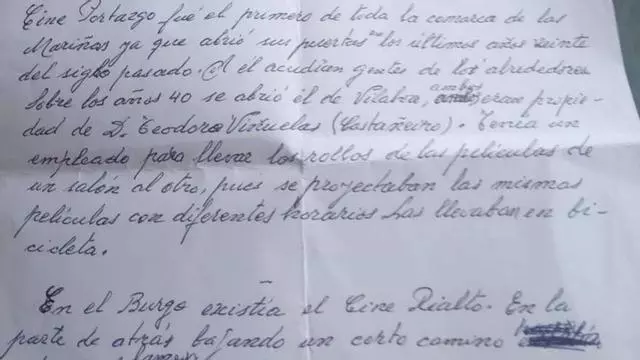 Cine Portazgo fué el primero de toda la comarca de las
Mariñas ya que abrió sus puertas en los últimos años veinte
del siglo pasado. A el acudían gentes de los alrededores
Sobre los años 40 se abrió el de Vilaboa, ambos eran propie-
dad de D. Teodoro Viñuelas (Castañeiro). Tenía un
empleado para llevar los rollos de las películas de
un salón al otro, pues se proyectaban las mismas
películas con diferentes horarios. Las llevaban en bi-
cicleta.
En el Burgo existía el Cine Rialto. En la
parte de atrás bajando un corto camino